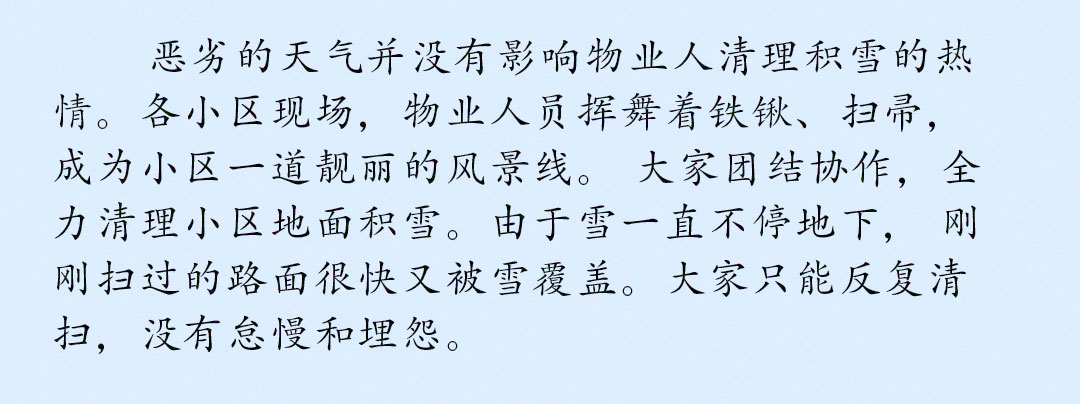 恶劣的天气并没有影响物业人清理积雪的热
情。各小区现场，物业人员挥舞着铁锹、扫帚，
成为小区一道靓丽的风景线。 大家团结协作，全
力清理小区地面积雪。由于雪一直不停地下， 刚
刚扫过的路面很快又被雪覆盖。大家只能反复清
扫，没有怠慢和埋怨。